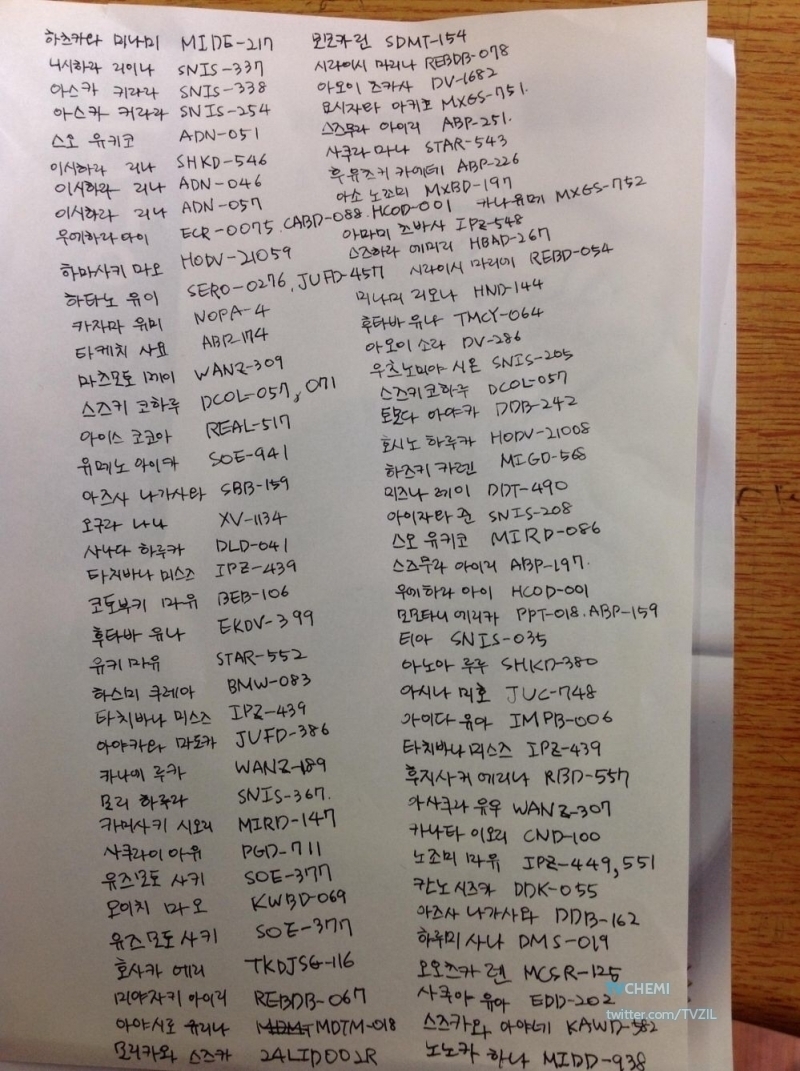 하즈카와 미나미 MIDE-217
니시하라 리이나 SNIS-337
아스카 키라라 SNIS-338
아스카 키라라 SNIS-254
스오 유키코 ADN-051
이시하라 리나 SHKD-546
이시하라 리나 ADN-046
이시하라 리나 ADN-057
우에하라 아이 ECR-0075. CABD-088. HCOD-001
하마사키 마오 HODV-21059
하타노 유이 SERO-0276, JUFD-457
카자마 유미 NOPA-4
타케치 사요 ABP-174
마츠모토 메이 WANZ-309
스즈키 코하루 DCOL-057, 071
아이스 코코아 REAL-517
유메노 아이카 SOE-941
아즈사 나가사와 SBB-159
오구라 나나 XV-1134
사나다 하루카 DLD-041
타치바나 미스즈 IPZ-439
코토부키 마유 BEB-106
후타바 유나 EKDV-399
유키 마유 STAR-552
하스미 쿠레아 BMW-083
타치바나 미스즈 IPZ-439
아야카와 마도카 JUFD-386
카나에 루카 WANZ-189
모리 하루라 SNIS-367.
카미사키 시오리 MIRD-147
사쿠라이 아유 PGD-711
유즈모토 사키 SOE-377
모이치 마오 KWBD-069
유즈모토 사키 SOE-377
호사카 에리 TKDJSG-116
미야자키 아이리 REBDB-067
아야시로 유리나 MDTM-018
모리카와 스즈카 24LID002R
모모카 린 SDMT-154
시라이시 마리나 REBDB-078
아오이 츠카사 DV-1682
요시자와 아키호 MXGS-751.
스즈무라 아이리 ABP-251.
사쿠라 마나 STAR-543
후유즈키 카에데 ABP-226
아소 노조미 MXBD-197
카나 유메 MXGS-752
아마미 츠바사 IPZ-548
스즈하라 에미리 HBAD-267
시라이시 마리에 REBD-054
미나미 리오나 HND-144
후타바 유나 TMCY-064
아오이 소라 DV-286
우츠노미야 시온 SNIS-205
스즈키 코하루 DCOL-057
토모다 아야카 DDB-242
호시노 하루카 HODV-21008
하즈키 카렌 MIGD-568
미즈나 레이 DDT-490
아이자와 준 SNIS-208
스오 유키코 MIRD-086
스즈무라 아이리 ABP-197.
우에하라 아이 HCOD-001
모모타니 에리카 PPT-018. ABP-159
티아 SNIS-035
아노아 루루 SHKD-380
아시나 미호 JUC-748
아이다 유아 IMPB-006
타치바나 미스즈 IPZ-439
후지사키 에리나 RBD-557
아사쿠라 유우 WANZ-307
카나타 이오리 CND-100
노조미 마유 IPZ-449, 551
칸노 시즈카 DDK-055
아즈사 나가사와 DDB-162
하루미 사나 DMS-019
오오츠카 렌 MCSR-125
사쿠아 유아 EDD-202
스즈카와 아야네 KAWD-582
노노카 하나 MIDD-938
CHEMI
twitter.com/TVZIL